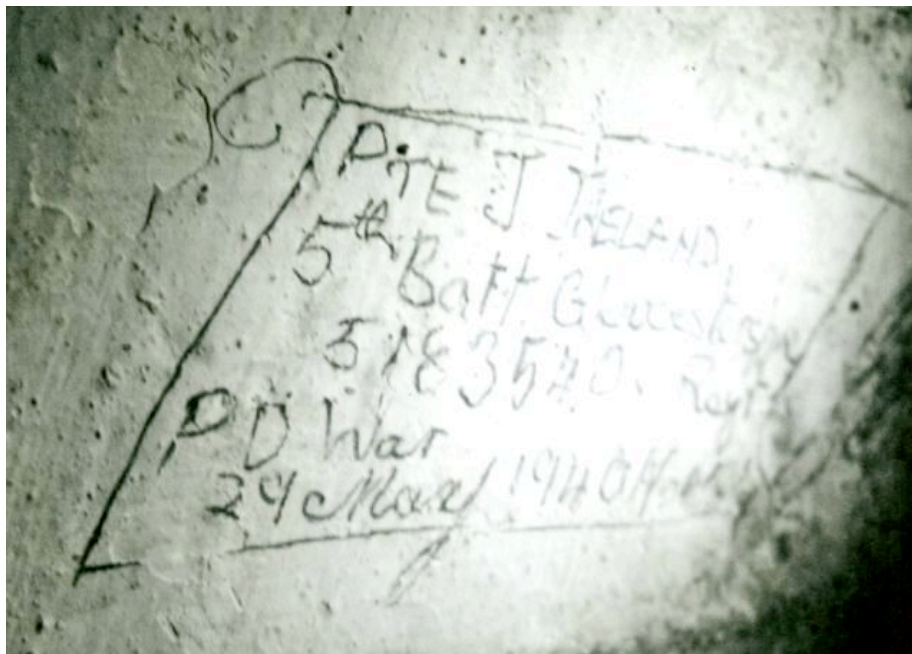 PTE J IRELAND
5th Batt Gloucestershire
5183540. Regt
P.D War
29 May 1940